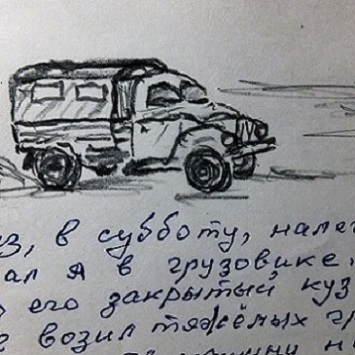 аз, в субботу, нале
ал я в грузовике.
его закрытый куз
е возил тяжёлых гр